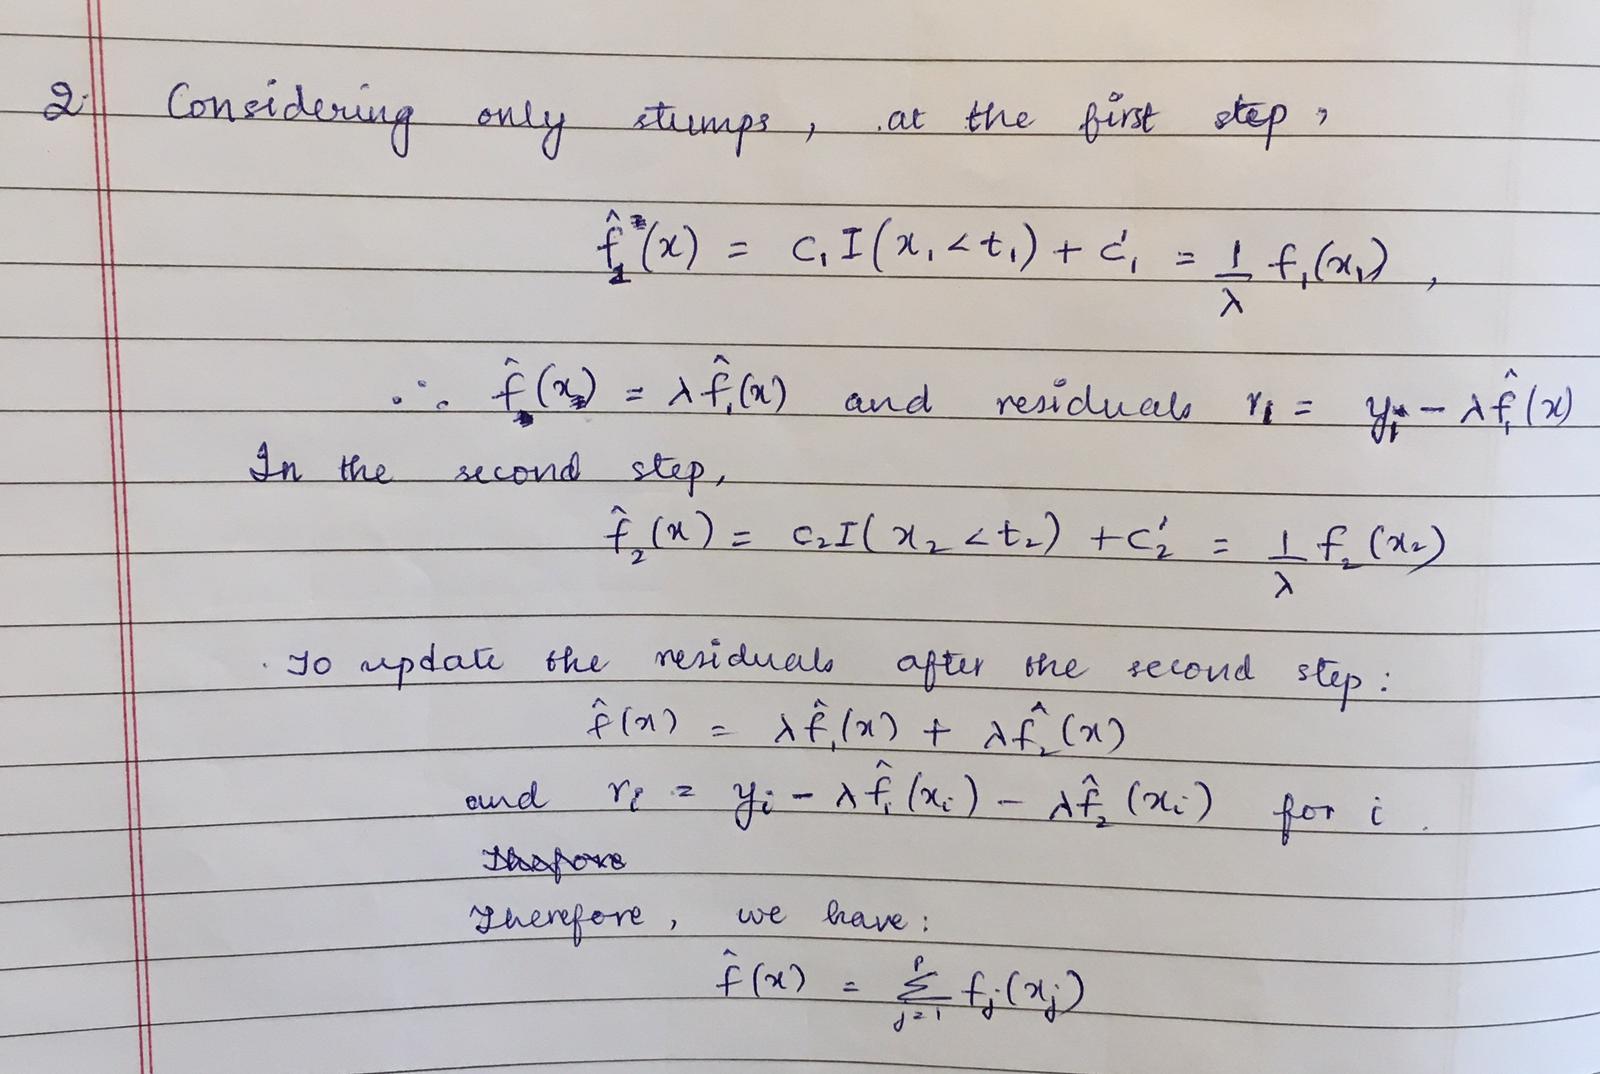 2. Considering only stumps, at the first step,
f̂₁(x) = c₁I(x₁<t₁) + c'₁ = 1/λ f₁(x₁),
∴ f̂(x) = λf̂₁(x) and residuals rᵢ = yᵢ - λf̂₁(x)
In the second step,
f̂₂(x) = c₂I(x₂<t₂) + c'₂ = 1/λ f₂(x₂)
To update the residuals after the second step:
f̂(x) = λf̂₁(x) + λf̂₂(x)
and rᵢ = yᵢ - λf̂₁(xᵢ) - λf̂₂(xᵢ) for i.
Therefore, we have:
f̂(x) = Σⱼ₌₁ᵖ fⱼ(xⱼ)